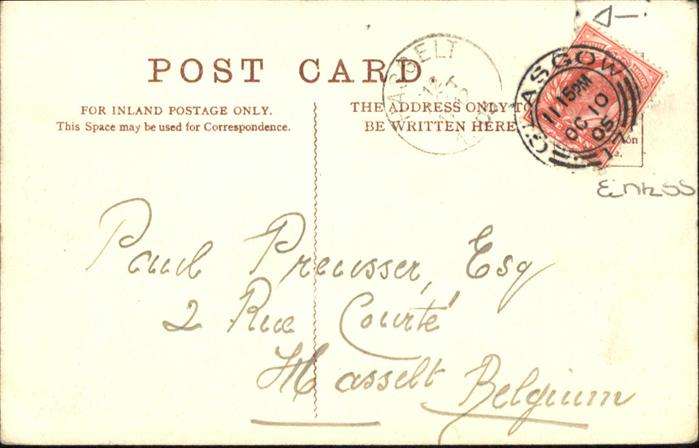 POST CARD
FOR INLAND POSTAGE ONLY.
This Space may be used for Correspondence.
THE ADDRESS ONLY TO
BE WRITTEN HERE
HASSELT
GLASGOW
11 15PM
OC 10
05
Paul Preusser, Esq
2 Rue Courté
Hasselt Belgium